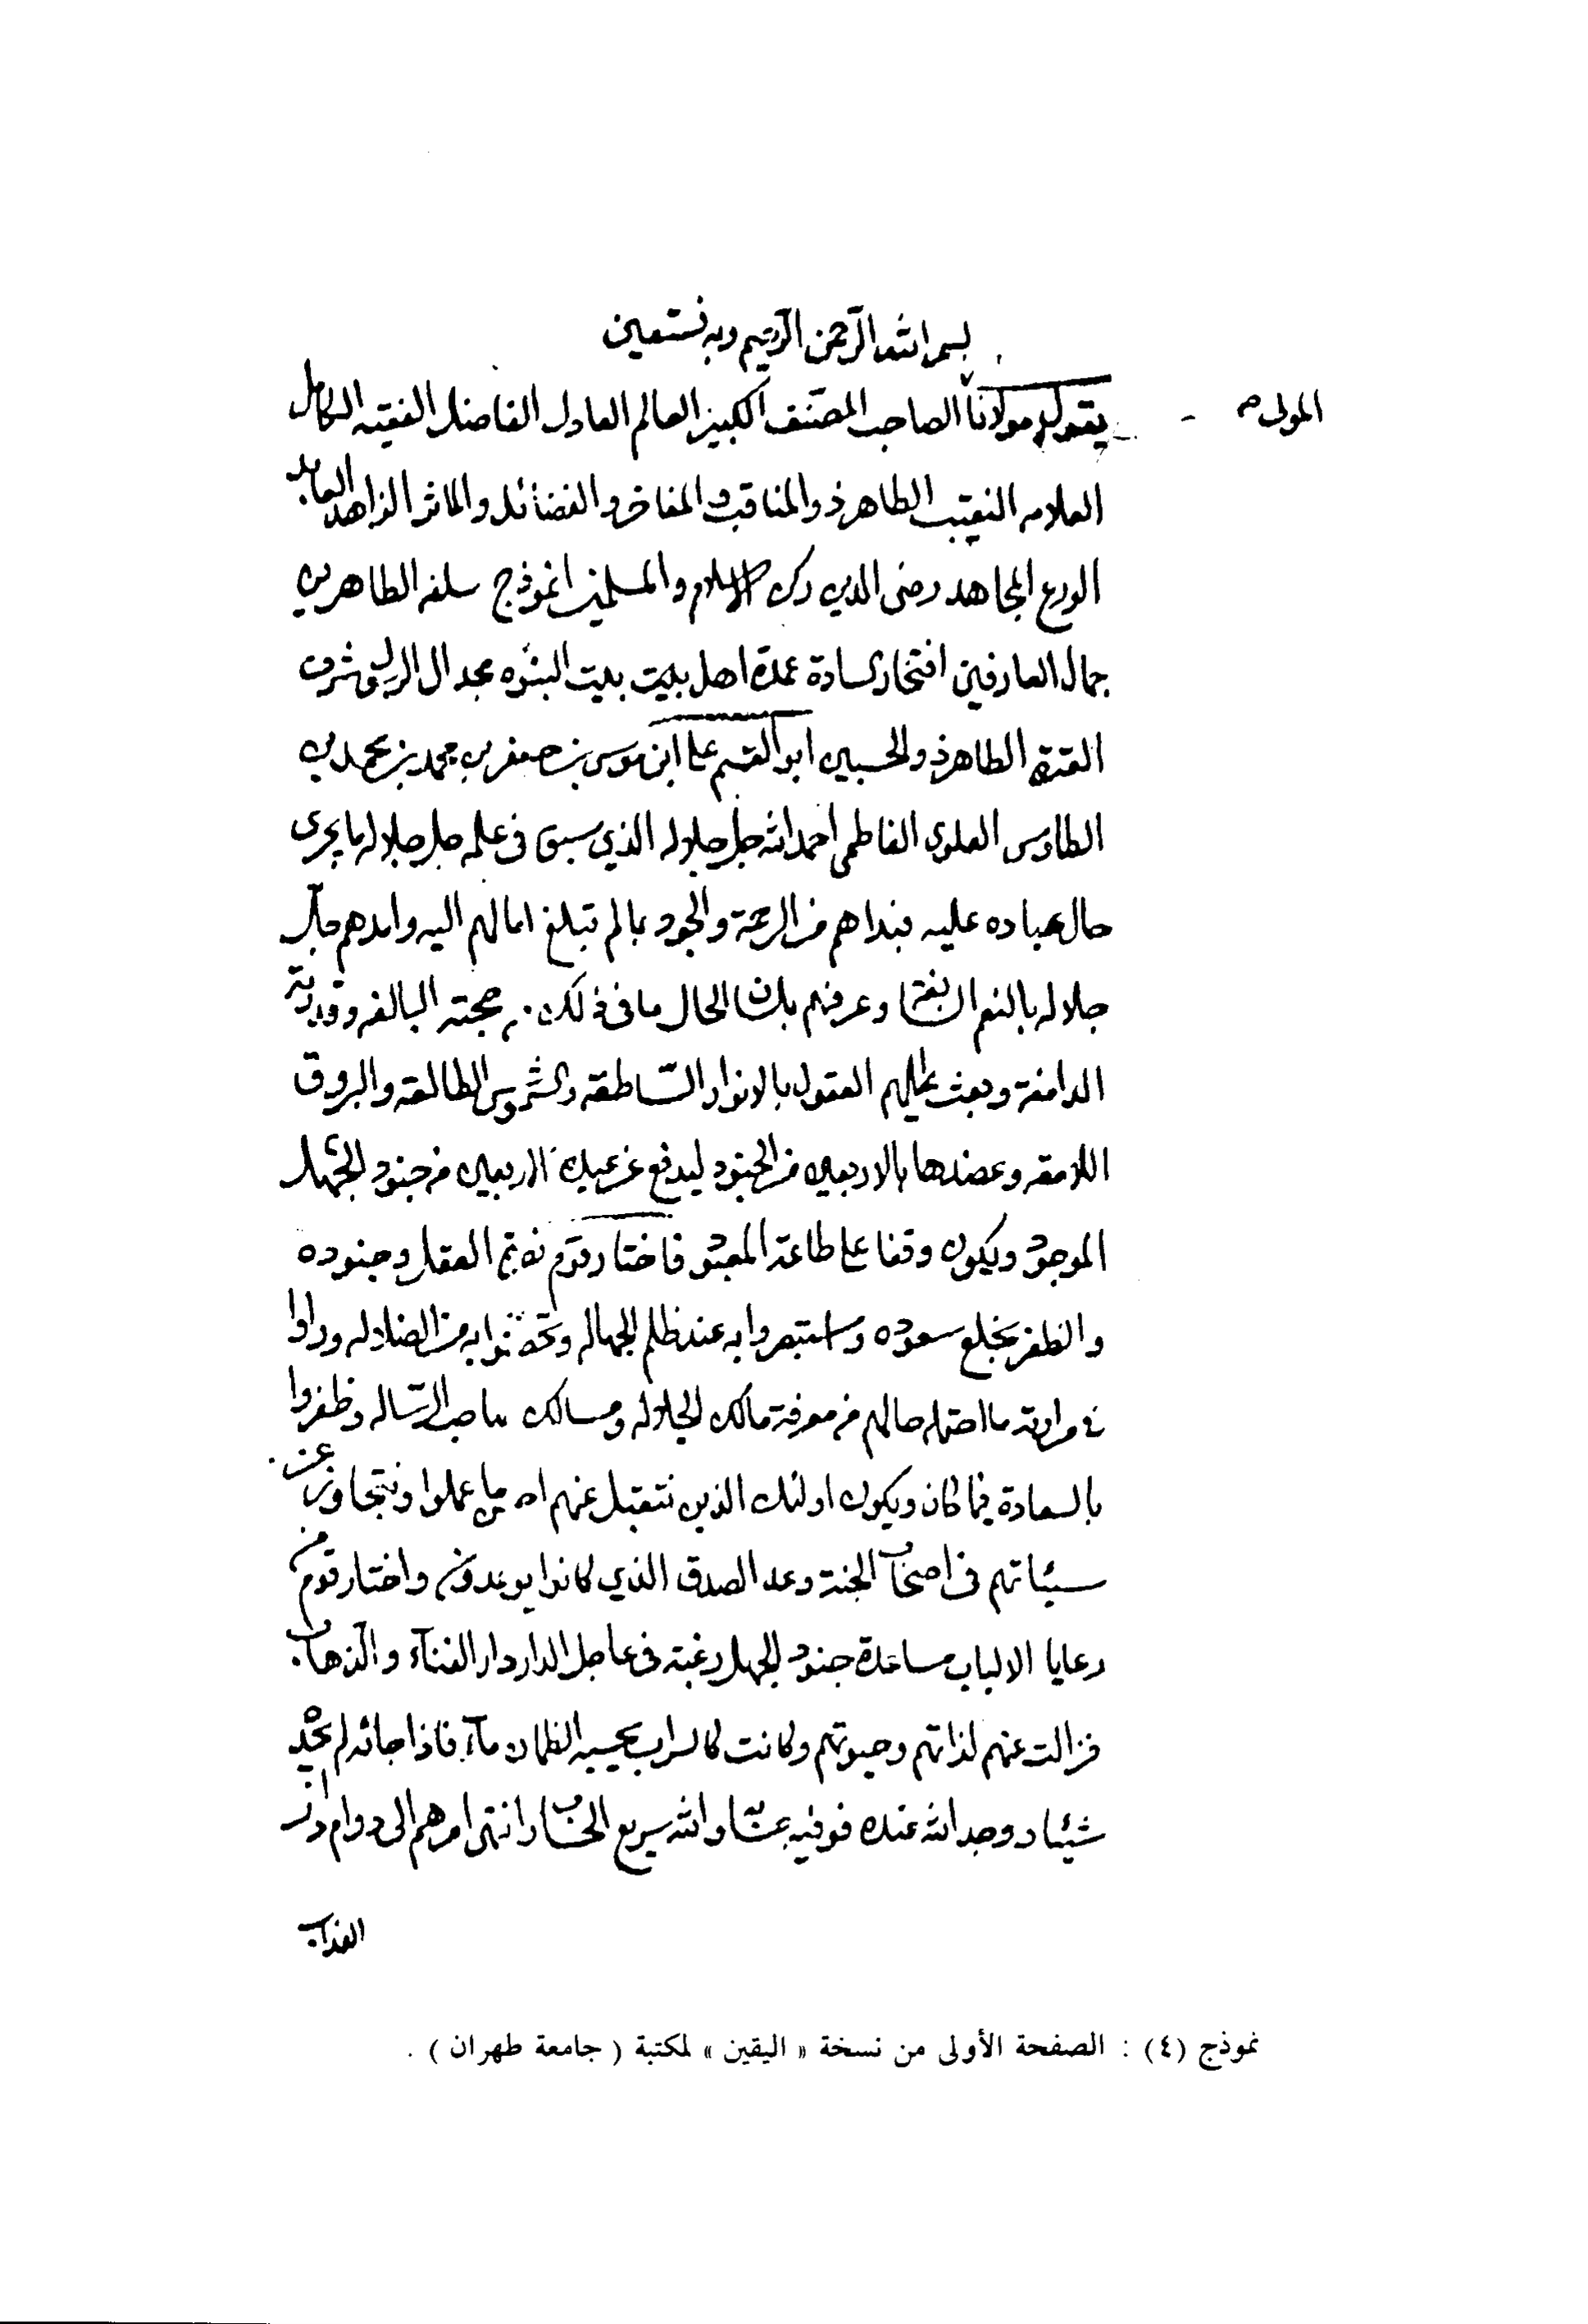 بسم الله الرحمن الرحيم وبه نستعين
المولى
يقول مولانا الصاحب المصنف الكبير العالم العادل الفاضل الفقيه الكامل
العلامه النقيب الطاهر ذو المناقب والمفاخر والفضائل والماثر الزاهد العابد
الورع المجاهد رضى الدين ركن الاسلام والمسلمين انموذج سلفه الطاهرين
جمال العارفين افتخار السادة عمدة اهل بيت النبوه مجد ال الرسول شرف
العترة الطاهر ذو الحسبين ابو القسم على ابن موسى بن جعفر بن محمد بن محمد بن
الطاوس العلوي الفاطمي احمد الله جل جلاله الذي سبق فى علمه جل جلاله ما يجرى
حال عباده عليه فبداهم من الرحمة والجود بما لم تبلغ امالهم اليه وامدهم جل
جلاله بالنعم السابغة وعرفهم بلسان الحال ما فى ذلك من حجته البالغه وقدرته
الدامغة وبعث اليهم العقول بالانوار الساطعه والشموس الطالعه والبروق
اللامعه وعضدها بالاربعين من الجنود ليدفع عن عبيده الاربعين من جنود الجهل
الموجود ويكون وقفا على طاعة المعبود فاختار قوم نجم العقل وجنوده
والظفر بخلع سعوده واستبصروا به عند ظلم الجهاله وتحصنوا به من الضلاله وراوا
فى مراته ما احتمله حالهم من معرفة مالك الجلاله ومسالك صاحب الرساله وظفروا
بالسعادة فيما كان ويكون اولئك الذين نتقبل عنهم احسن ما عملوا ونتجاوز عن
سيئاتهم فى اصحاب الجنة وعد الصدق الذي كانوا يوعدون واختار قوم من
رعايا الالباب مساعدة جنود الجهل رغبة فى عاجل الدار دار الفناء والذهاب
فزالت عنهم لذاتهم وحيوتهم وكانت كالسراب يحسبه الظمان ماء فاذا جائه لم يجده
شيئا ووجد الله عنده فوفيه حسابه والله سريع الحساب وانتهى امرهم الى دوام
العذاب
نموذج (٤) : الصفحة الأولى من نسخة « اليقين » لمكتبة ( جامعة طهران ) .